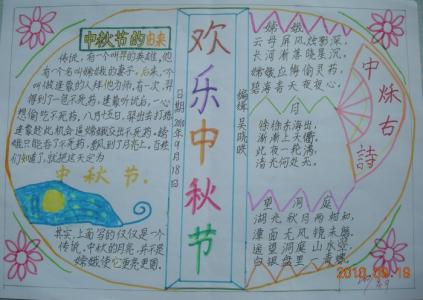 中秋节的由来
传说，有一个叫羿的英雄，他
有个名叫嫦娥的妻子。后来，一个
叫做逢蒙的人拜他为师。有一天，羿
得到了一包不死药。逢蒙听说后，一心
想偷吃不死药。八月十五日，羿出去打猎，
逢蒙趁此机会逼嫦娥交出不死药。嫦
娥只能吞了不死药，飘到了月亮上。百姓
们知道了，就把这天定为
中秋节.
其实，上面写的仅仅是一个
传说，中秋的月亮，并不是
嫦娥使它更亮更圆。
欢乐中秋节
日期2010年9月18日
编辑 吴晓映
中秋古詩
嫦娥
云母屏风烛影深，
长河渐落晓星沉。
嫦娥应悔偷灵药，
碧海青天夜夜心。
月
徐徐东海出，
渐渐上云衢。
此夜一轮满，
清光何处无。
望洞庭
湖光秋月两相和，
潭面无风镜未磨。
遥望洞庭山水翠，
白银盘里一青螺。
2010.09.19